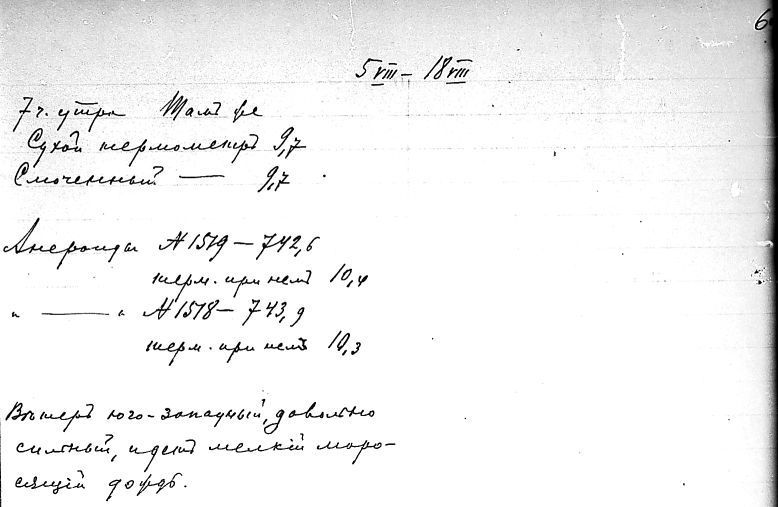 6
5 VIII – 18 VIII
7 ч. утра Шалъ ре
Сухой термометръ 9,7
Смоченный — 9,7
Анероиды № 1519 – 742,6
терм. при немъ 10,4
" — " № 1518 – 743,9
терм. при немъ 10,3
Вѣтеръ юго-западный, довольно
сильный, идетъ мелкій моро-
сящій дождь.